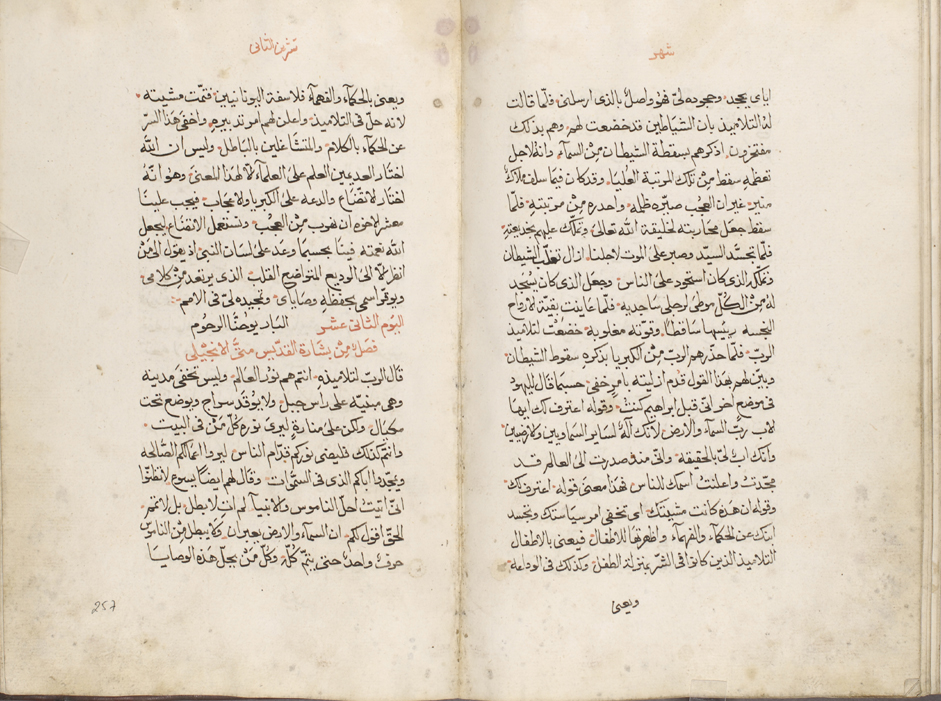 شهر
اياى يجحد. وجحوده لى فهو واصل بالذى ارسلنى. فلما قالت
له التلاميذ بان الشياطين قد خضعت لهم. وهم بذلك
مفتخرون. اذكرهم بسقطة الشيطان من السمآء. وانه لاجل
تعظمه سقط من تلك المرتبة العليا. وقد كان فيما سلف ملاك
منير. غير ان العجب صيّره ظلمه. واحدره من مرتبته. فلما
سقط جعل محاربته لخليقة الله تعالى. وتملّك عليهم بخديعته.
فلما تجسّد السيّد وصبر على الموت لاجلنا. ازال تغلّب الشيطان
وتملّكه الذى كان استحود على الناس. وجعل الذى كان يسُجد
له من الكلّ موطى لرجلى ساجديه. فلما عاينت بقيّة الارواح
النجسه رييسها ساقطًا. وقوته مغلوبة. خضعت لتلاميذ
الربّ. فلما حذرهم الربّ من الكبريا بذكره سقوط الشيطان
وبيّن لهم بهذا القول قدم ازليته بامرٍ خفى. حسبما قال لليهود
فى موضع اخر انّى قبل ابراهيم كنت. وقوله اعترف لك ايها
الاب ربّ السمآء والارض. لانّك اله لساير السماويين والارضيين
وانك ابٌ لى بالحقيقه. وانى منذ صدرت الى العالم قد
مجّدتُ واعلنت اسمك للناس. فهذا معنى قوله. اعترف لك.
وقوله ان هذه كانت مشيتك. اى تخفى امر سياستك وتجسد
ابنك عن الحكمآء والفهمآء. واظهرتها للاطفال. فيعنى بالاطفال
التلاميذ الذين كانوا فى الشرّ بمنزلة الطفل. وكذلك فى الوداعة.
ويعنى
تشرين الثانى
ويعنى بالحكمآء والفهمآء فلاسفة اليونانيين. فتمّت مشيته.
لانه حلّ فى التلاميذ. واعلن لهم امر تدبيره. واخفى هذا السرّ
عن الحكمآء بالكلام. والمتشاغلين بالباطل. وليس ان الله
اختار العديمين العلم على العلمآء. الا لهذا المعنى. وهو انّه
اختار الاتضاع والدعة على الكبريا والاعجاب. فيجب علينا
معشر الاخوه ان نهرب من العجب. ونستعمل الاتضاع ليجعل
الله نعمته فينا بحسبما وعد على لسان النبى اذ يقول الى من
انظر الّا الى الوديع المتواضع القلب الذى يرتعد من كلامى.
ويوقّر اسمى بحفظه وصاياى. وتمجيده لى فى الامم.
اليوم الثانى عشر البار يوحنّا الرحوم
فصل من بشارة القدّيس متّى الانجيلى
قال الربّ لتلاميذه. انتم هم نور العالم. وليس تخفى مدينه
وهى مبنيّه على راس جبل. ولا يوقد سراج ويوضع تحت
مكيال. ولكن على منارةٍ ليرى نوره كلّ من فى البيت.
وانتم كذلك فليضى نوركم قدّام الناس. ليروا اعمالكم الصّالحه
ويمجّدوا اباكم الذى فى السموات. وقال لهم ايضًا يسوع لا تظنّوا
انّى اتيت لحلّ الناموس والانبيآء. لم اتِ لابطل بل لاتمّم.
الحقّ اقول لكم. ان السمآء والارض يعبران. ولا يبطل من الناموس
حرفٌ واحدٌ حتى يتمّ كلّه. وكلّ من يحلّ هذه الوصايا
257